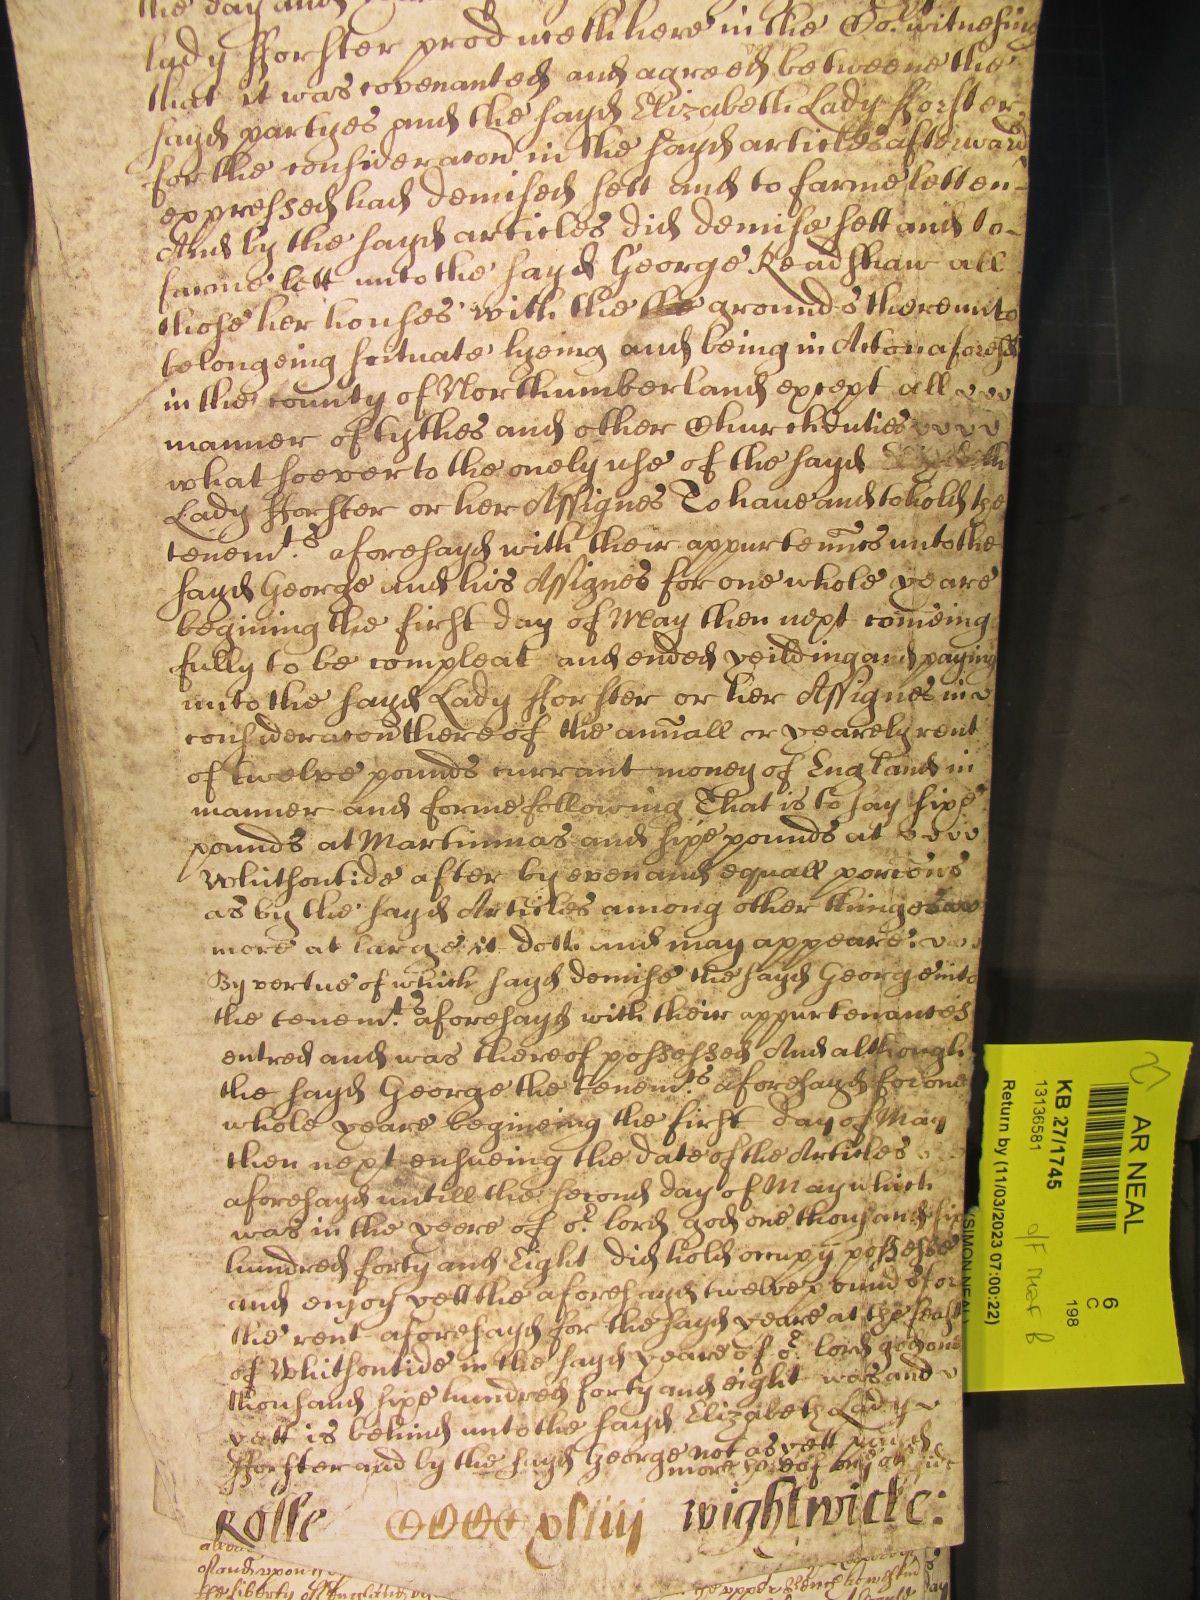 the day and
Lady fforster produceth here in the Co:rt witnesing
that it was covenanted and agreed betweene the
sayd partyes and the sayd Elizabeth Lady fforster
for the consideracon in the sayd articles afterward
expressed had demised sett and to farme letten
And by the sayd articles did demise sett and to
farme lett unto the sayd George Readshaw all
those her houses with the the grounds thereunto
belongeing scituate lyeing and being in Acton aforesd
in the county of Northumberland except all
manner of tythes and other Church duties
whatsoever to the onely use of the sayd Elizabeth
Lady fforster or her Assignes To have and to hold the
tenem:ts aforesayd with their appurtennces unto the
sayd George and his Assignes for one whole yeare
begining the first day of May then next comeing
fully to be compleat and ended yeilding and paying
unto the sayd Lady fforster or her Assignes in
consideracon thereof the annuall or yearely rent
of twelve pounds currant money of England in
manner and forme following That is to say sixe
pounds at Martinmas and sixe pounds at
Whitsontide after by even and equall porcons
as by the sayd Articles among other things
more at large it doth and may appeare:
By vertue of which sayd demise the sayd George into
the tenem:ts aforesayd with their appurtenances
entred and was thereof possessed And although
the sayd George the tenem:ts aforesayd for one
whole yeare begineing the first day of May
then next ensueing the date of the Articles
aforesayd untill the second day of May which
was in the yeere of o:r lord god one thousand six
hundred forty and Eight did hold occupy possesse
and enjoy yett the aforesayd twelve pounds for
the rent aforesayd for the sayd yeare at the feast
of Whitsontide in the sayd yeare of o:r lord god one
thousand sixe hundred forty and eight was and
yett is behind unto the sayd Elizabeth Lady
fforster and by the sayd George not as yett paid
more
Rolle xliiij Wightwicke:
AR NEAL
6
C
198
KB 27/1745
13136581
Return by (11/03/2023 07:00:22)
(SIMON NEAL)